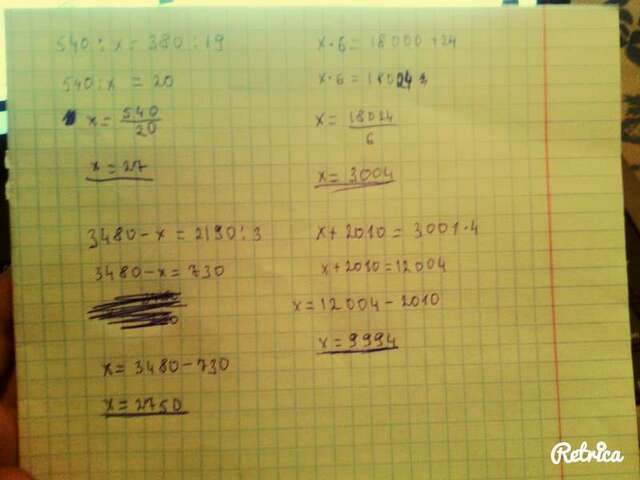 540 : x = 380 : 19
540 : x = 20
x = 540/20
x = 27
x · 6 = 18000 + 24
x · 6 = 18024
x = 18024/6
x = 3004
3480 - x = 2190 : 3
3480 - x = 730
x = 3480 - 730
x = 2750
x + 2010 = 3001 · 4
x + 2010 = 12004
x = 12004 - 2010
x = 9994
Retrica